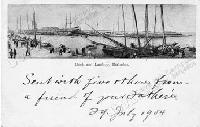 Dock and Landing, Barbados.
Sent with five others from
a friend of your Father's
29. July 1904